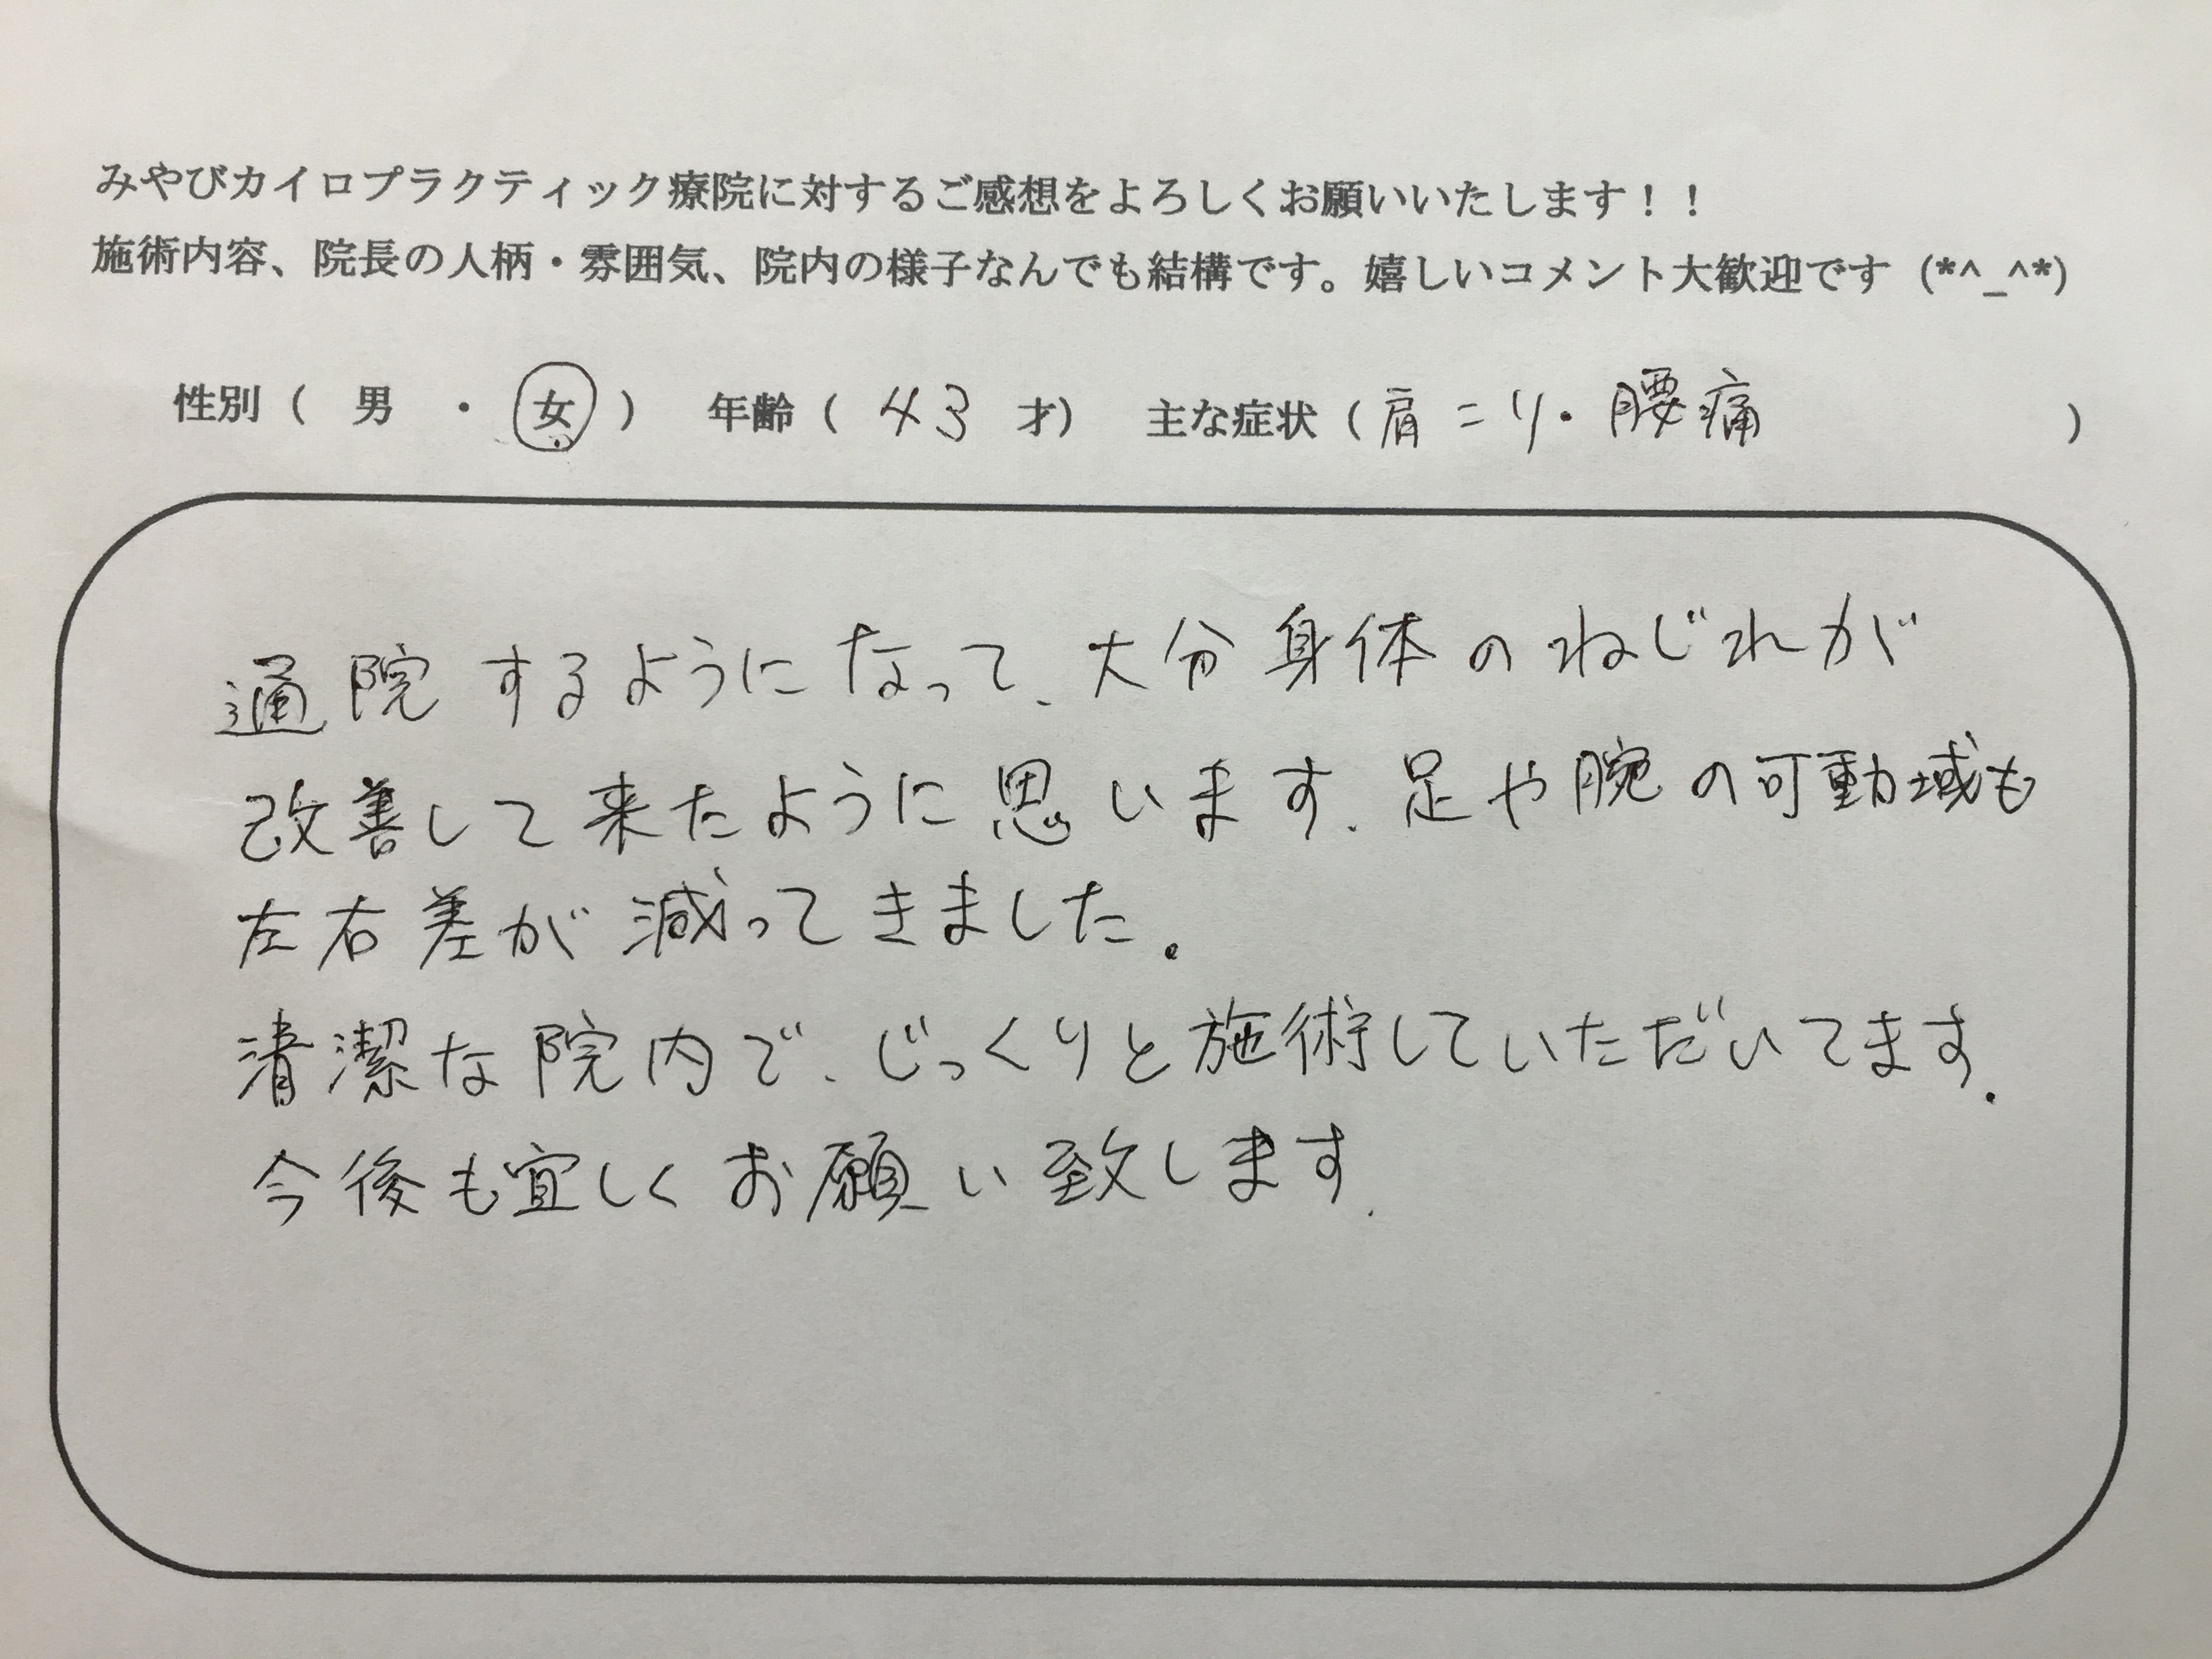 みやびカイロプラクティック療院に対するご感想をよろしくお願いいたします！！
施術内容、院長の人柄・雰囲気、院内の様子なんでも結構です。嬉しいコメント大歓迎です (*^_^*)
性別（ 男 ・ 女 ） 年齢（ 43 才） 主な症状（肩こり・腰痛 ）
通院するようになって、大分身体のねじれが
改善して来たように思います。足や腕の可動域も
左右差が減ってきました。
清潔な院内で、じっくりと施術していただいてます。
今後も宜しくお願い致します。